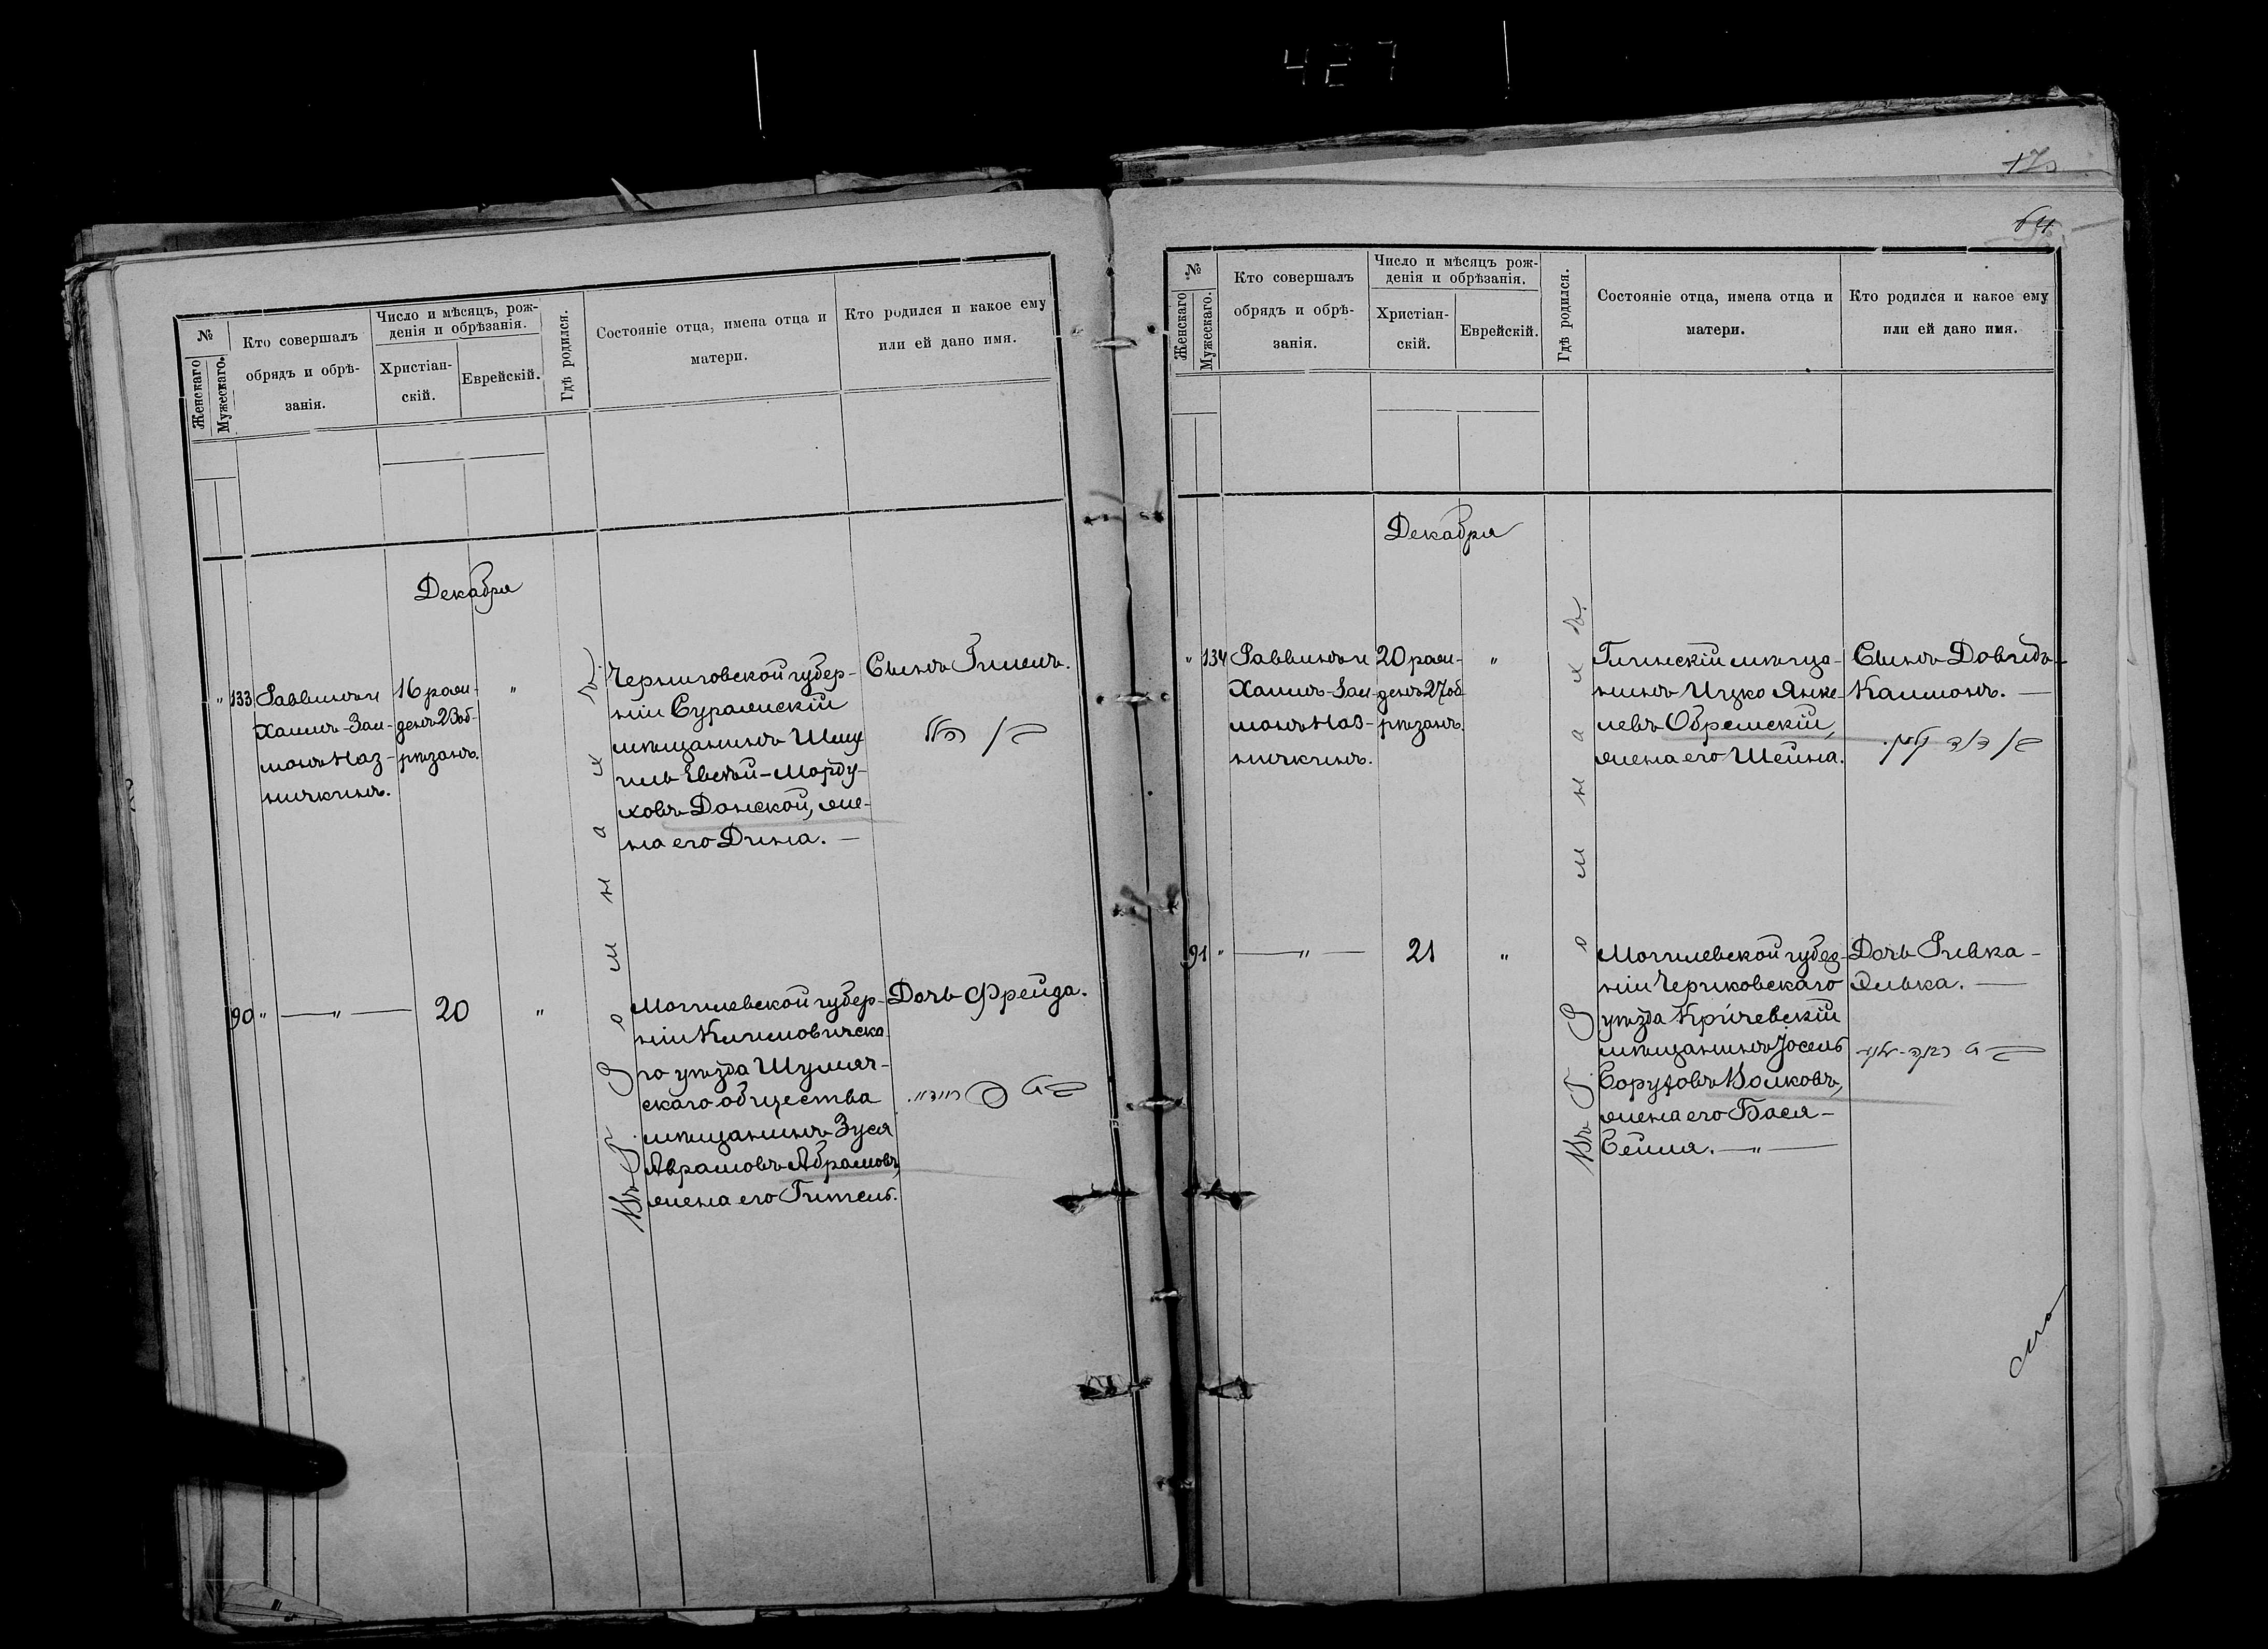 427
170
64
№
Женскаго
Мужескаго.
Кто совершалъ
обрядъ и обрѣ-
занія.
Число и мѣсяцъ, рож-
денія и обрѣзанія.
Христіан-
скій.
Еврейскій.
Гдѣ родился.
Состояніе отца, имена отца и
матери.
Кто родился и какое ему
или ей дано имя.
Декабря
" 133
Раввинъ и
Хаимъ-Зал-
монъ Наз-
ничкинъ.
16 рож-
денъ 23 об-
рѣзанъ.
"
Черниговской губер-
ніи Суражскій
мѣщанинъ
Морду-
ховъ Донской, же-
на его Дина. —
Сынъ Гилель.
בן הלל
90 "
— " —
20
"
Могилевской губер-
ніи Климовичска-
го уѣзда Шумяч-
скаго общества
мѣщанинъ Зуся
Аврамовъ Абрамовъ,
жена его Гитель.
Дочь Фрейда.
בת פריידא.
Въ г. Ромнахъ.
№
Женскаго
Мужескаго.
Кто совершалъ
обрядъ и обрѣ-
занія.
Число и мѣсяцъ рож-
денія и обрѣзанія.
Христіан-
скій.
Еврейскій.
Гдѣ родился.
Состояніе отца, имена отца и
матери.
Кто родился и какое ему
или ей дано имя.
Декабря
" 134
Раввинъ и
Хаимъ-Зал-
монъ Наз-
ничкинъ.
20 рож-
денъ 27 об-
рѣзанъ.
"
Глинскій мѣща-
нинъ Ицко Янке-
левъ Обремскій,
жена его Шейна.
Сынъ Довидъ-
Калмонъ. —
בן דוד קלמן.
91 "
— " —
21
"
Могилевской губер-
ніи Чериковскаго
уѣзда Кричевскій
мѣщанинъ Іосель
Боруховъ Волковъ,
жена его Бася-
Сейня. — " —
Дочь Ривка-
Элька. —
בת רבקה-עלקא
Въ г. Ромнахъ.